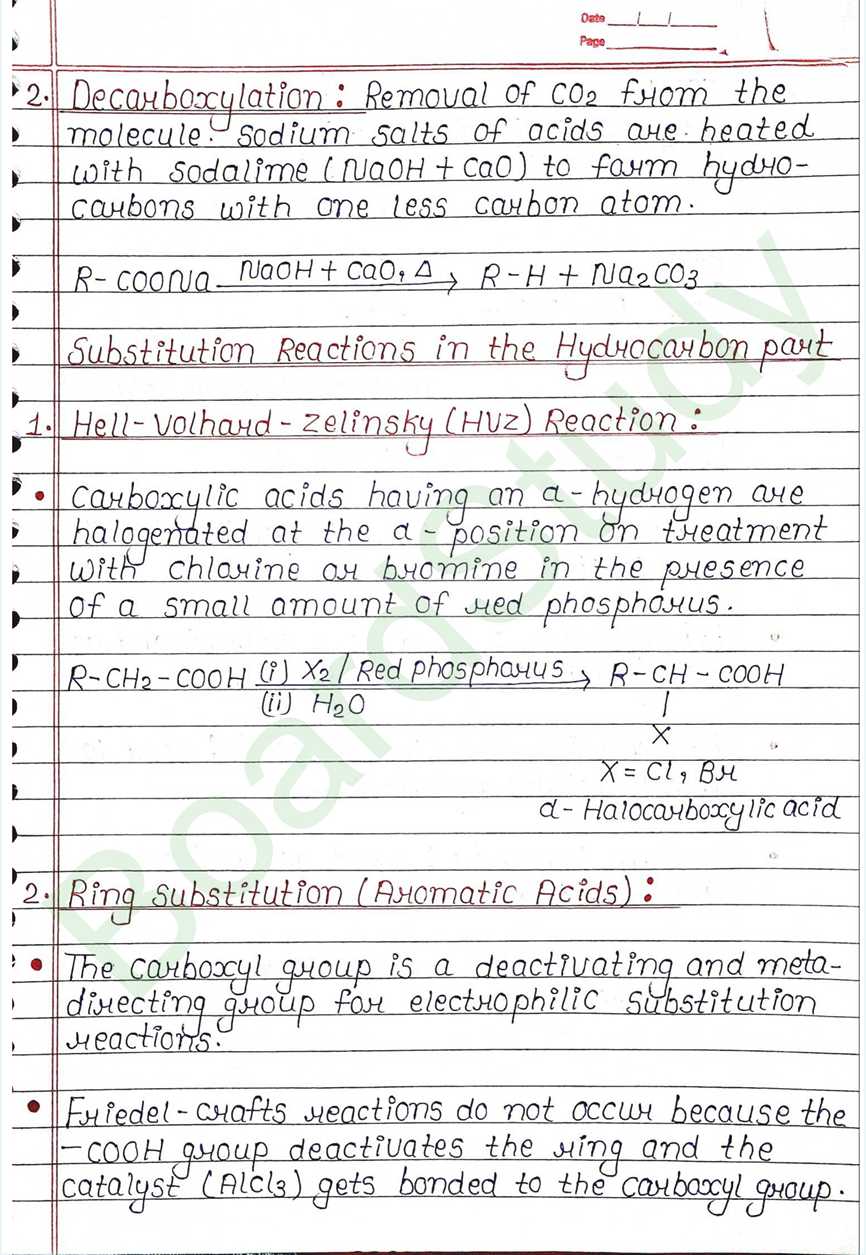 Date __/__/__
Page
2. Decarboxylation : Removal of CO2 from the
molecule. Sodium salts of acids are heated
with sodalime (NaOH + CaO) to form hydro-
carbons with one less carbon atom.
R-COONa NaOH + CaO, Δ → R-H + Na2CO3
Substitution Reactions in the Hydrocarbon part
1. Hell-Volhard-Zelinsky (HVZ) Reaction :
• Carboxylic acids having an α-hydrogen are
halogenated at the α-position on treatment
with chlorine or bromine in the presence
of a small amount of red phosphorus.
R-CH2-COOH (i) X2/Red phosphorus → R-CH-COOH
(ii) H2O |
X
X = Cl, Br
α-Halocarboxylic acid
2. Ring Substitution (Aromatic Acids) :
• The carboxyl group is a deactivating and meta-
directing group for electrophilic substitution
reactions.
• Friedel-crafts reactions do not occur because the
-COOH group deactivates the ring and the
catalyst (AlCl3) gets bonded to the carboxyl group.
BoardStudy